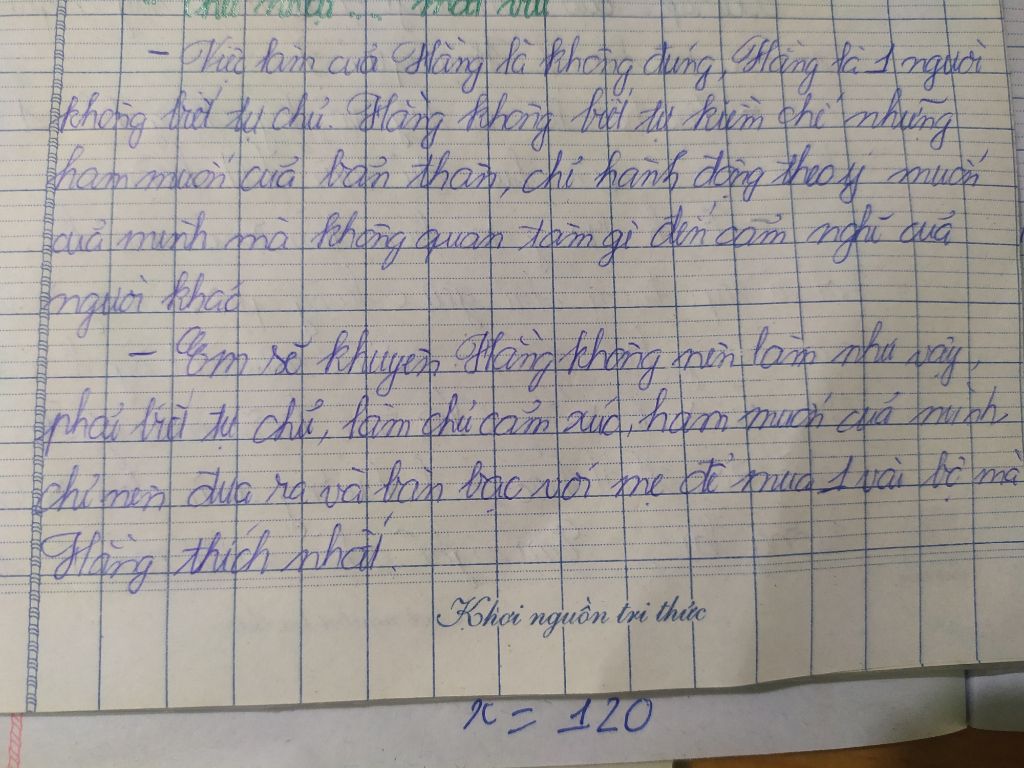 - Việc làm của Hằng là không đúng, Hằng là 1 người
không biết tự chủ. Hằng không biết tự kiềm chế những
ham muốn của bản thân, chỉ hành động theo ý muốn
của mình mà không quan tâm gì đến cảm nghĩ của
người khác
- Em sẽ khuyên Hằng không nên làm như vậy,
phải biết tự chủ, làm chủ cảm xúc, ham muốn của mình
chỉ nên đưa ra và bàn bạc với mẹ để mua 1 vài bộ mà
Hằng thích nhất.
Khơi nguồn tri thức
x = 120